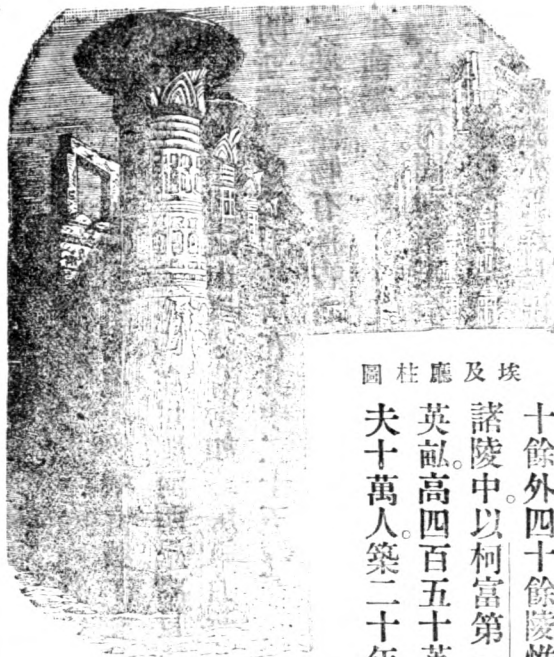 埃及廳柱圖
十餘外四十餘陵惟
諸陵中。以柯富第
英畝。高四百五十英
夫十萬人。築二十年